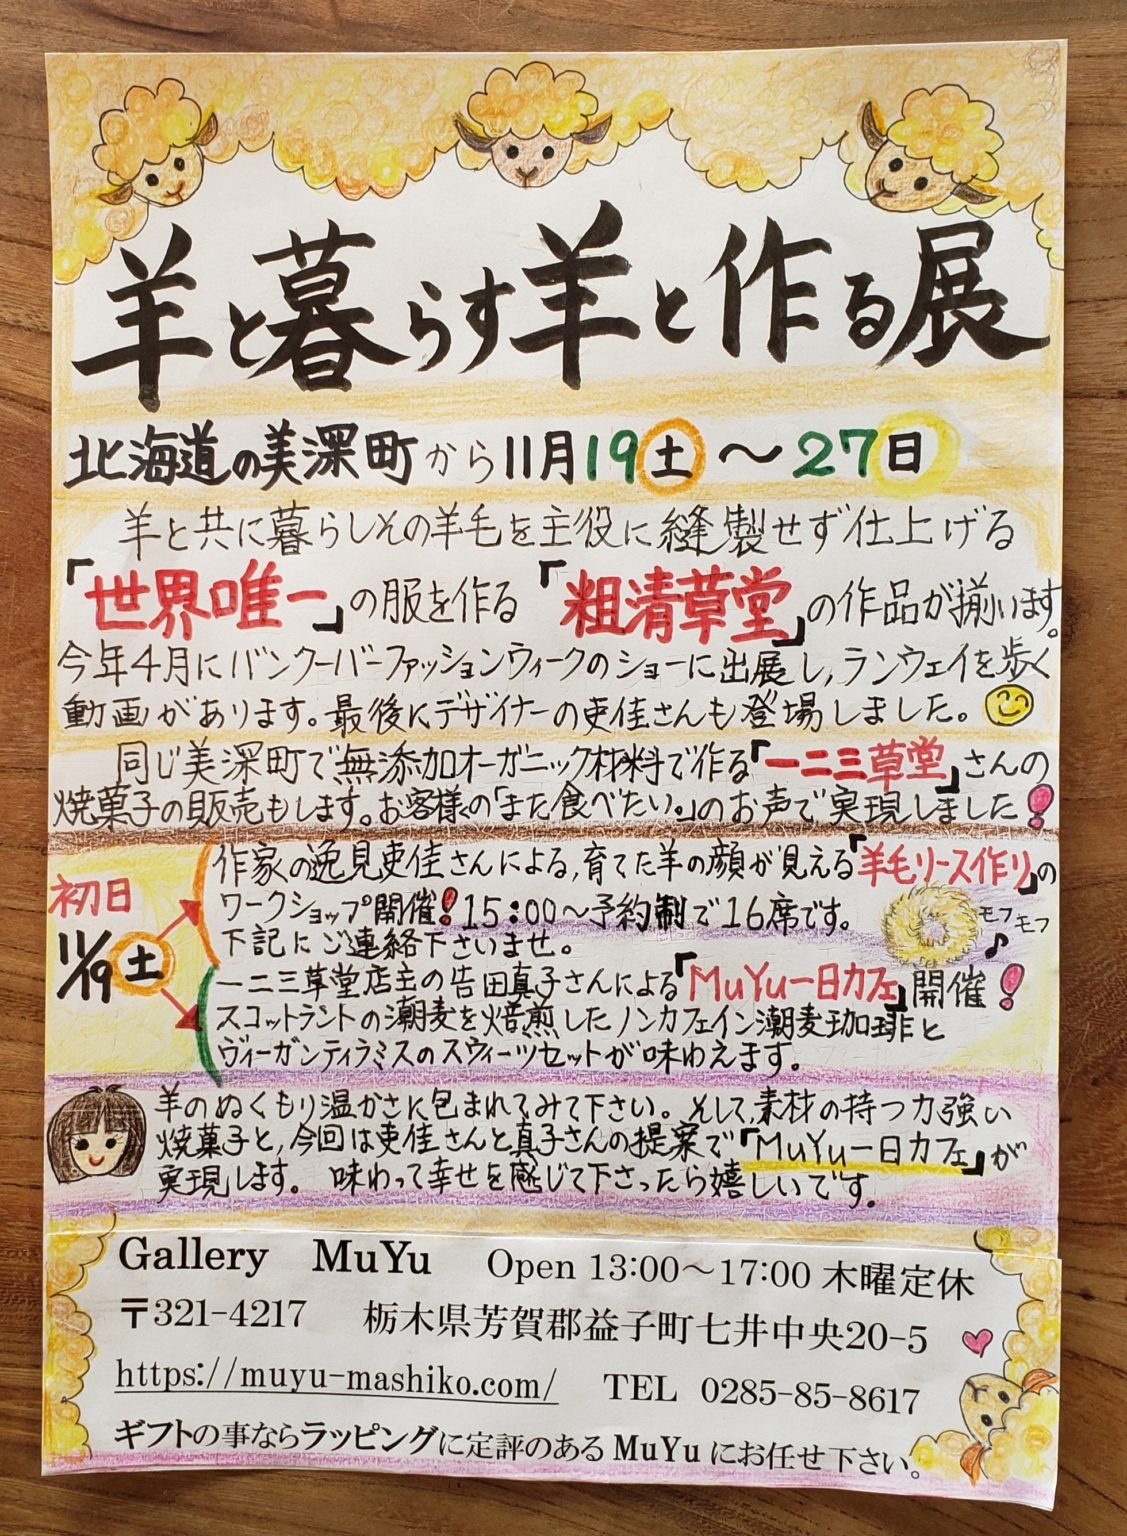 羊と暮らす羊と作る展
北海道の美深町から11月19土〜27日
羊と共に暮らしその羊毛を主役に縫製せず仕上げる
「世界唯一」の服を作る「粗清草堂」の作品が揃います。
今年4月にバンクーバーファッションウィークのショーに出展し,ランウェイを歩く
動画があります。最後にデザイナーの吏佳さんも登場しました。
同じ美深町で無添加オーガニック材料で作る「一二三草堂」さんの
焼菓子の販売もします。お客様の「また食べたい。」のお声で実現しました!
初日
11/19土
作家の逸見吏佳さんによる,育てた羊の顔が見える「羊毛リース作り」の
ワークショップ開催!15:00〜予約制で16席です。
下記にご連絡下さいませ。
モフモフ
一二三草堂店主の告田真子さんによる「MuYu一日カフェ」開催!
スコットラントの潮麦を焙煎したノンカフェイン潮麦珈琲と
ヴィーガンティラミスのスウィーツセットが味わえます。
羊のぬくもり温かさに包まれてみて下さい。そして,素材の持つ力強い
焼菓子と,今回は吏佳さんと真子さんの提案で「MuYu一日カフェ」が
実現します。 味わって幸せを感じて下さったら嬉しいです。
Gallery MuYu Open 13:00〜17:00 木曜定休
〒321-4217 栃木県芳賀郡益子町七井中央20-5
https://muyu-mashiko.com/ TEL 0285-85-8617
ギフトの事ならラッピングに定評のある MuYu にお任せ下さい。